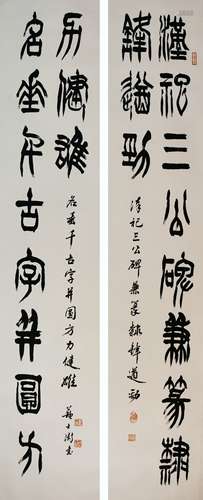 漢祀三公碑兼篆隸
鋒遒勁
漢祀三公碑兼篆隸鋒遒勁
名垂千古字并圓方
力健雄
名垂千古字并圓方力健雄
蘇士澍書